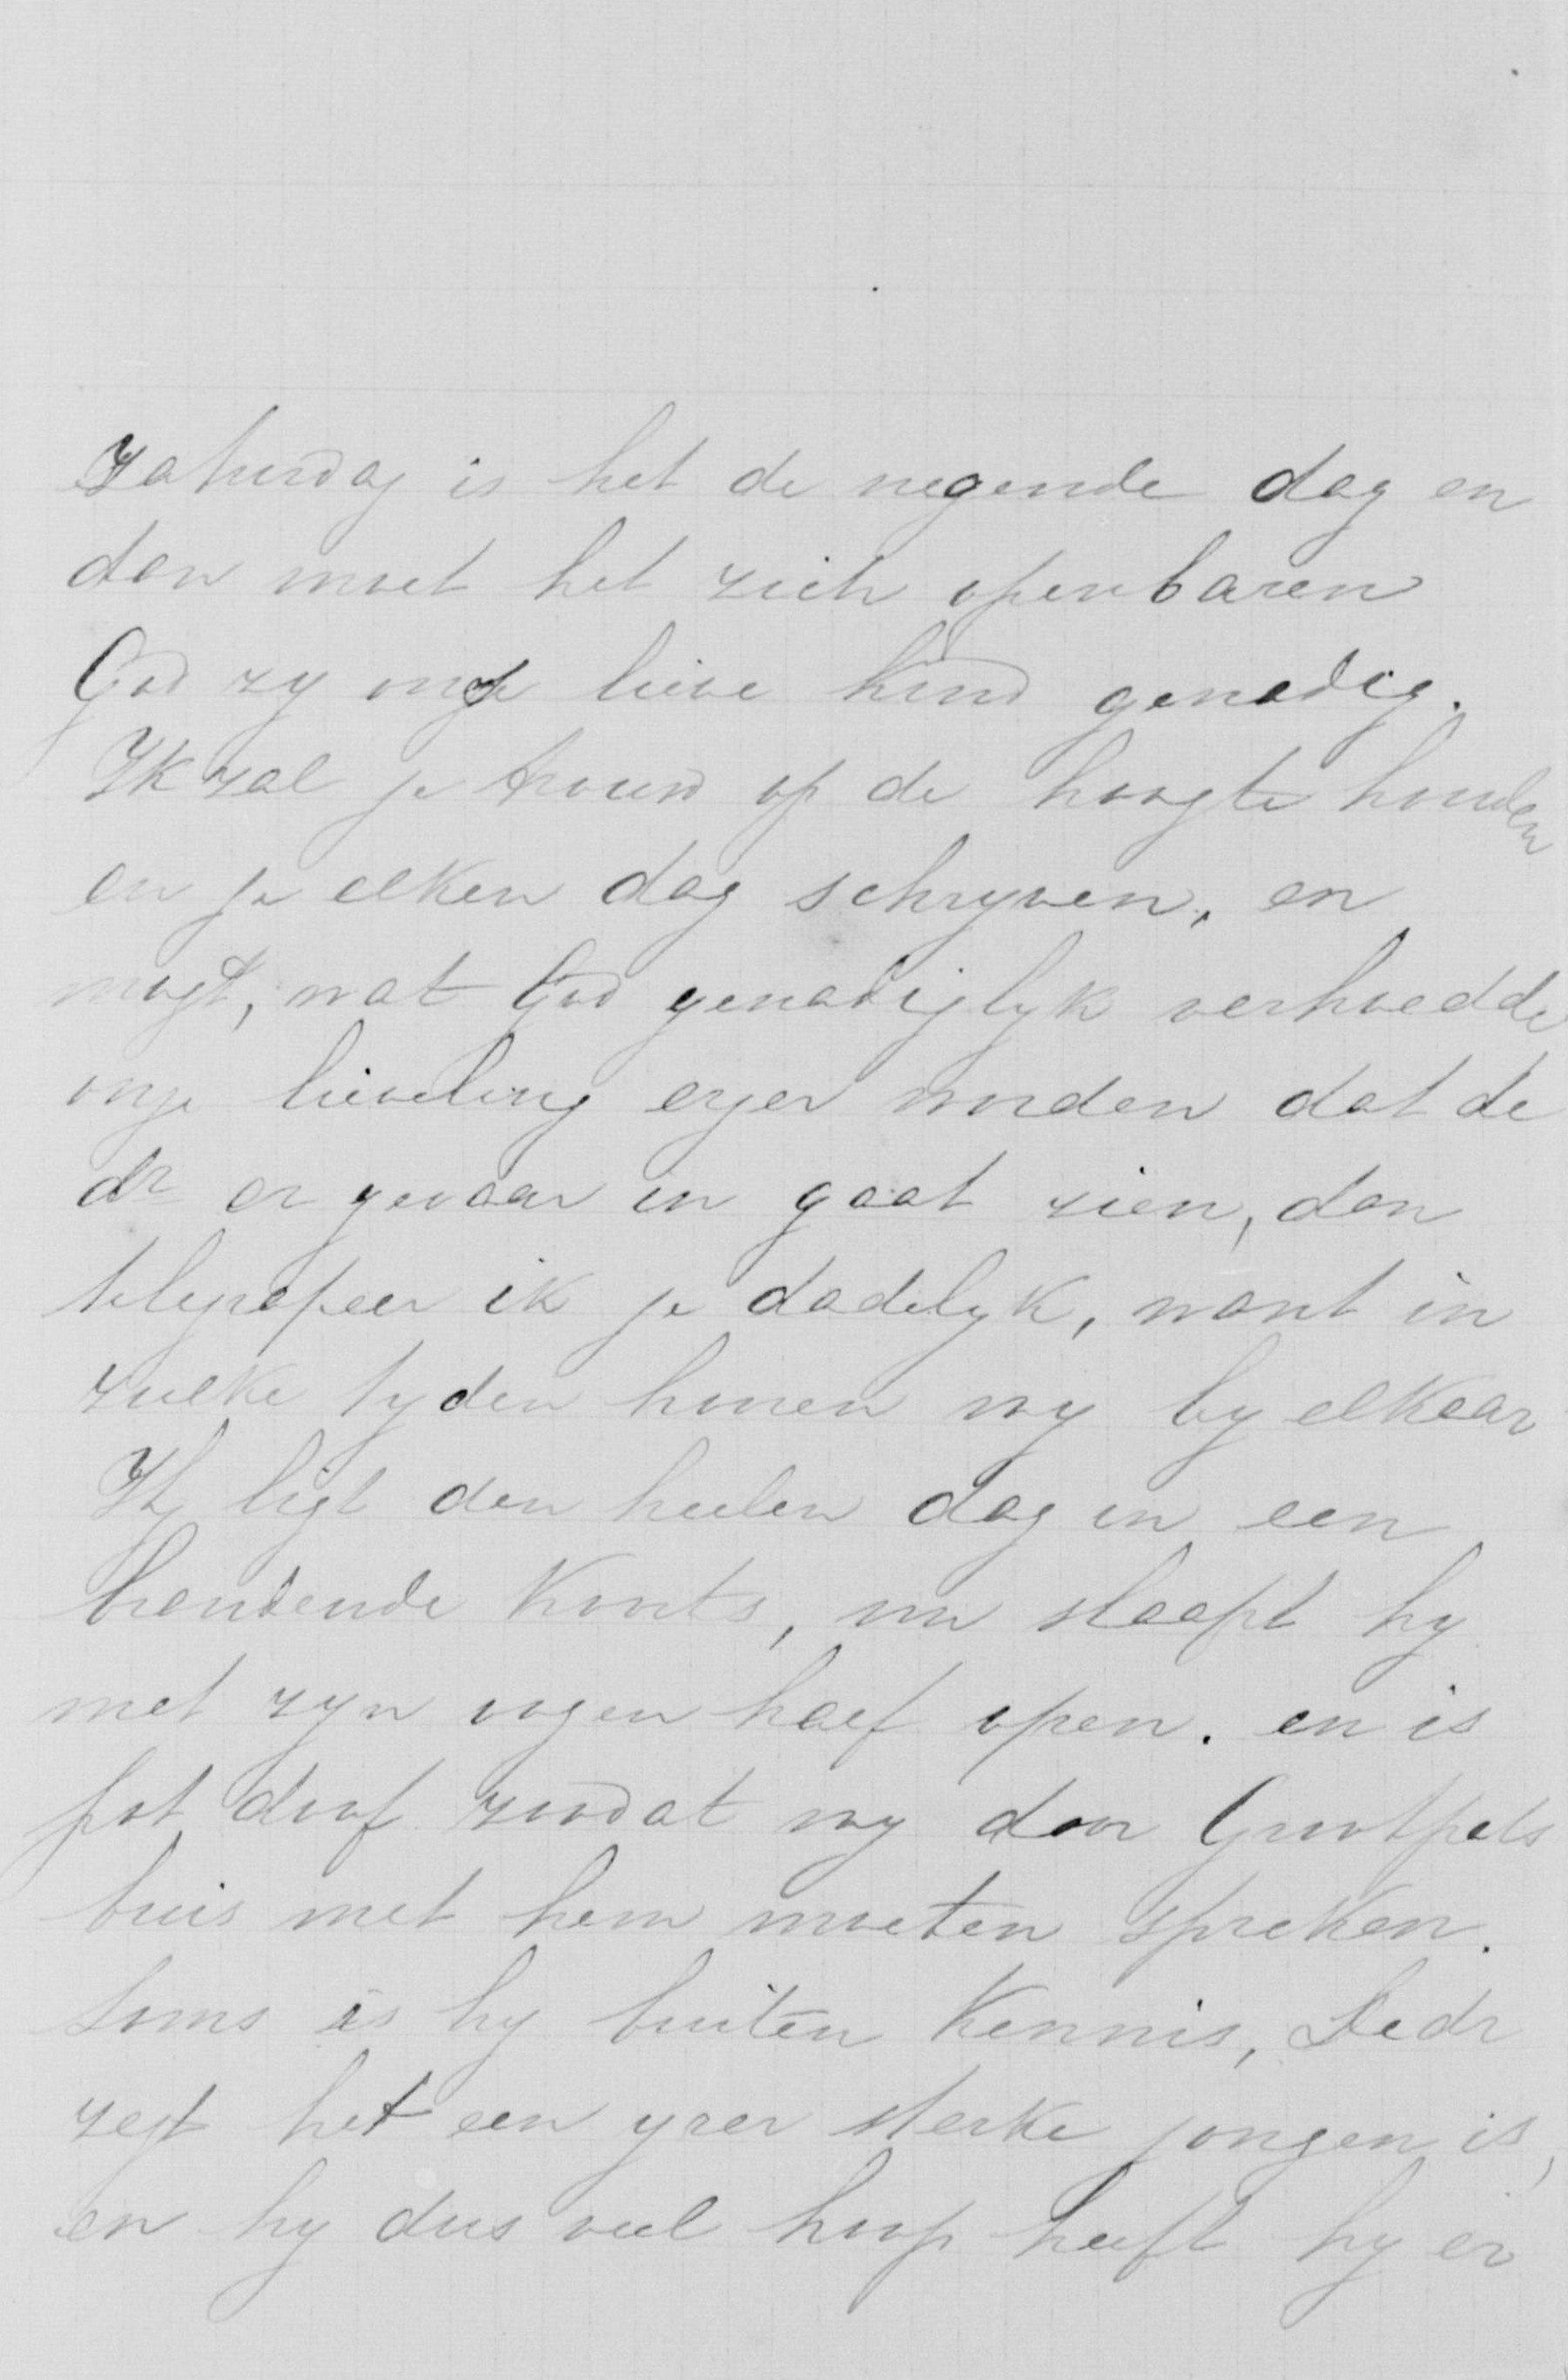 Zaturdag is het de negende dag en
dan moet het zich openbaren
God zy onze lieve kind genadig.
Ik zal je trouw op de hoogte houden
en je elken dag schryven, en
mogt, wat God genadiglyk verhoedde
onze lieveling erger worden dat de
dr er gevaar in gaat zien, dan
telegrafeer ik je dadelyk, want in
zulke tyden horen wy by elkaar
Hy ligt den heelen dag in een
brandende Koorts, nu slaapt hy
met zyn oogen half open. en is
pot doof zoodat wy door Grootpa's
buis met hem moeten spreken.
Soms is hy buiten Kennis, De dr
zegt het een yzer sterke jongen is,
en hy dus veel hoop heeft hy er